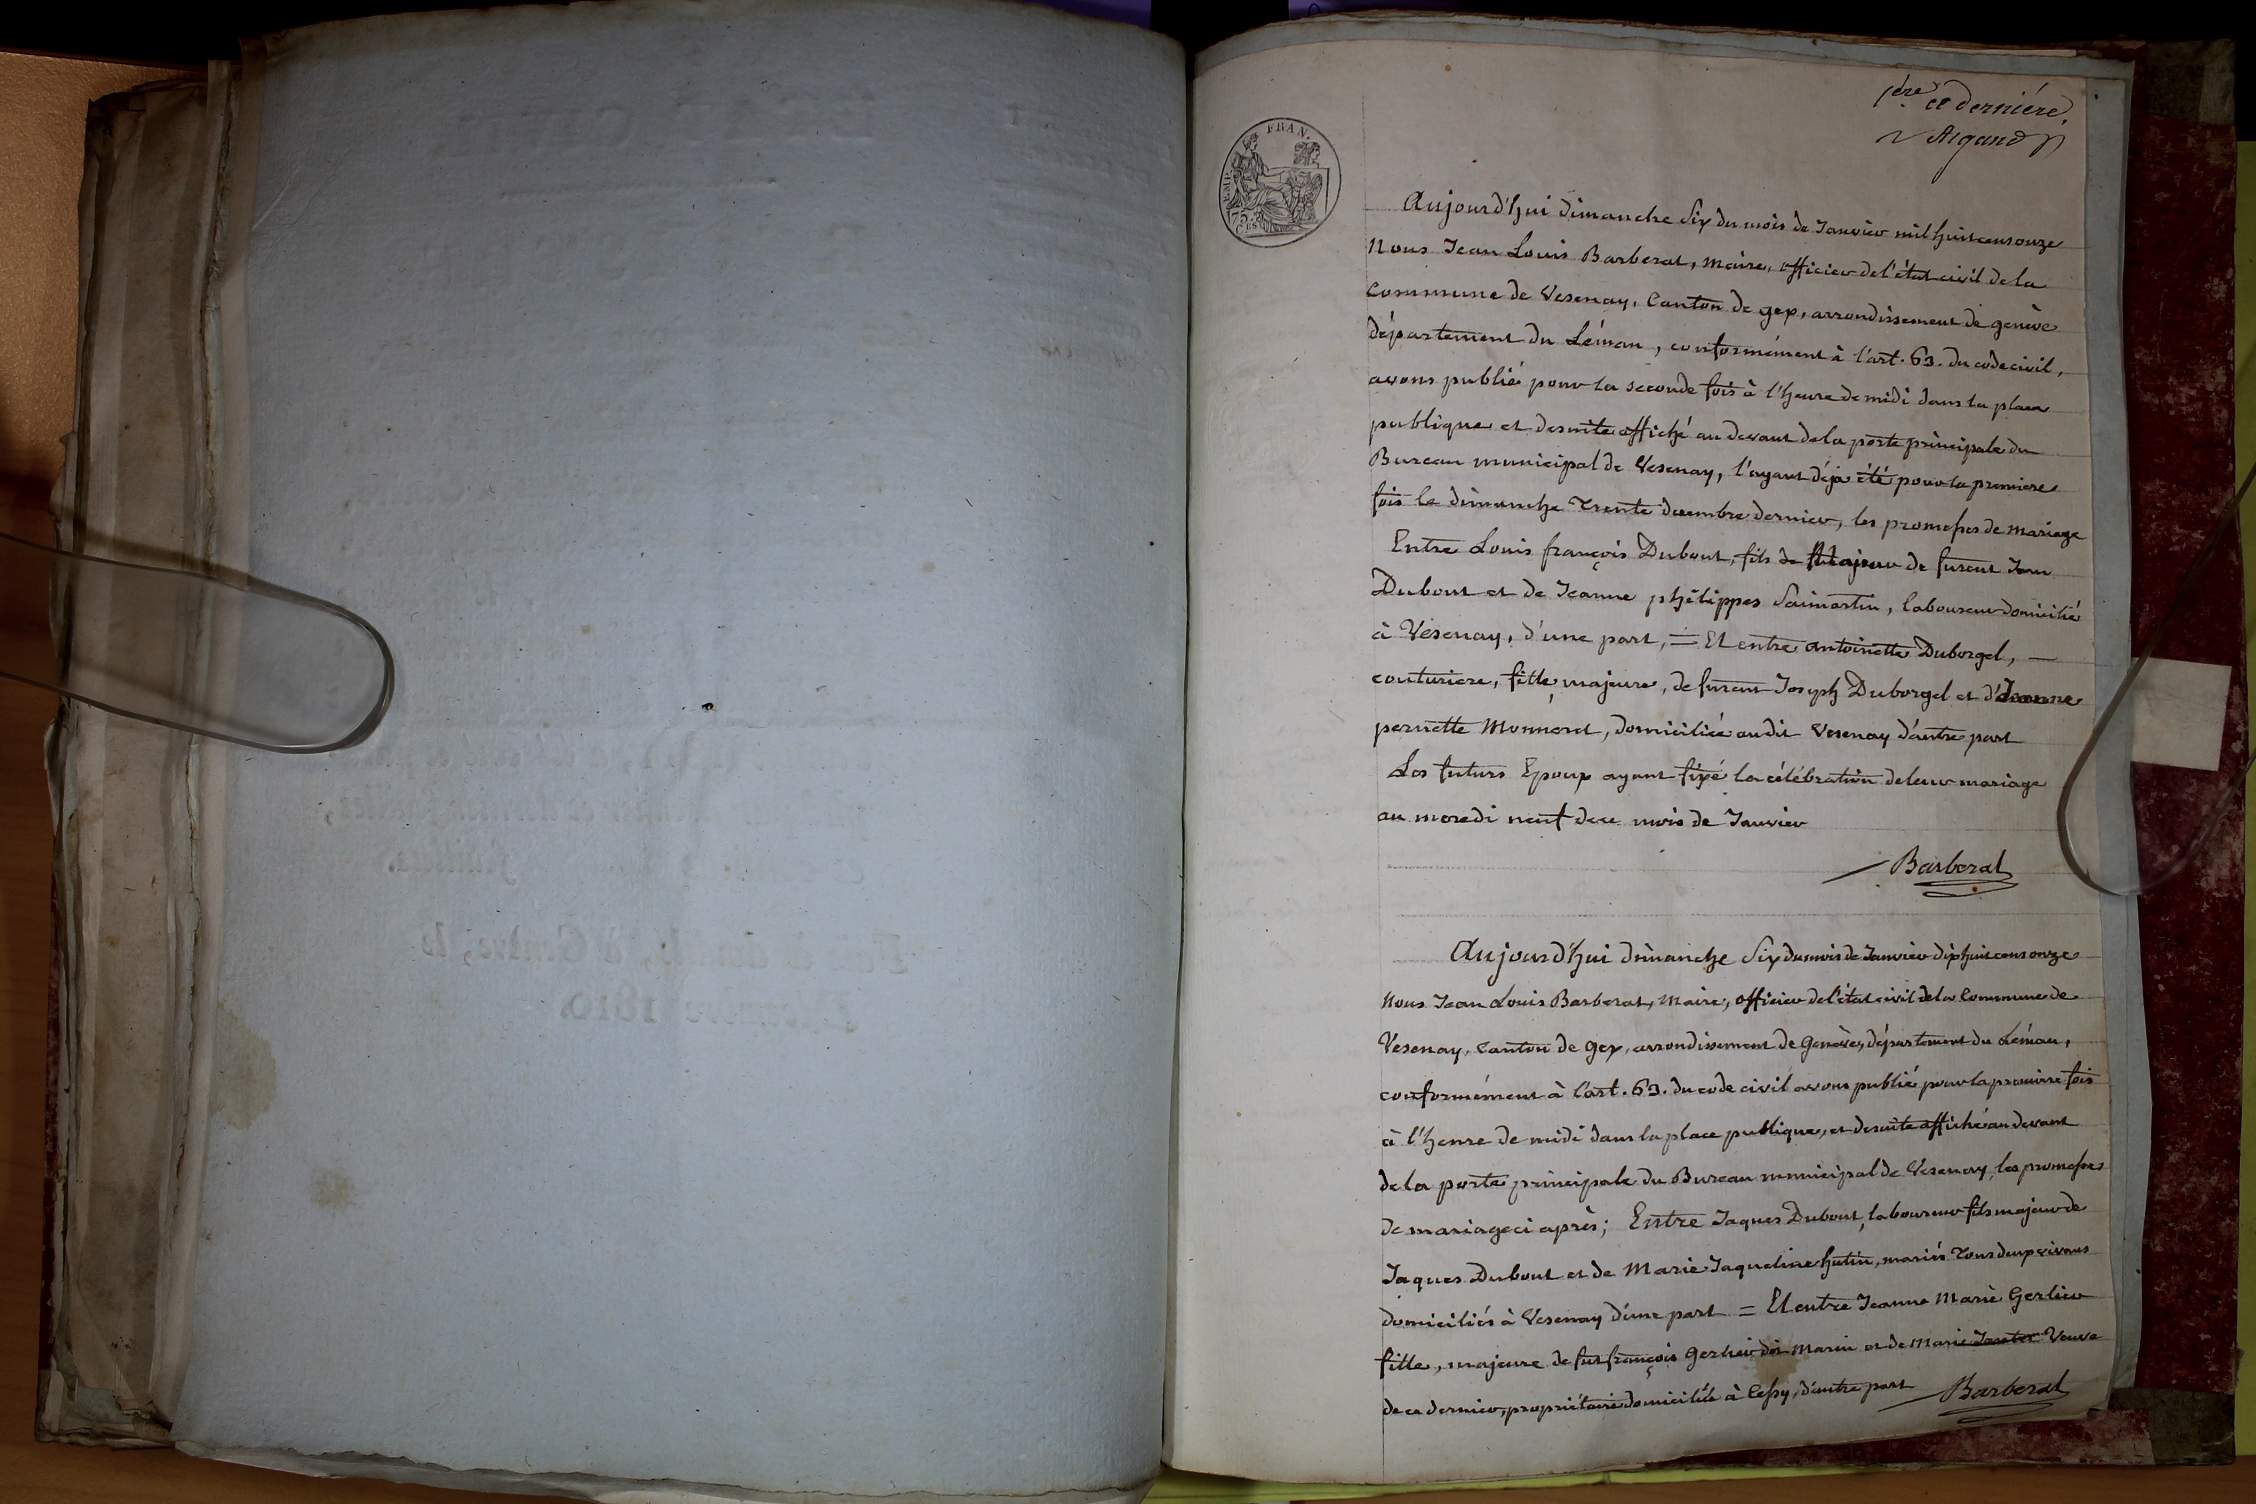 1ére et derniére.
Argand
EMP. FRAN.
75.
CES
Aujourd'hui dimanche Six du mois de Janvier mil huit cens onze
Nous Jean Louis Barberat, Maire, officier de l'état civil de la
commune de Vesenay, Canton de gex, arrondissement de genève
département du Léman, conformément à l'art. 63. du code civil,
avons publié pour la seconde fois à l'heure de midi dans la place
publique et desuite affiché au devant de la porte principale du
Bureau municipal de Vesenay, l'ayant déja été pour la premiere
fois le dimanche Trente decembre dernier, les promesses de mariage
Entre Louis françois Dubout, fils de Majeur de furent Jean
Dubout et de Jeanne philippes Saimartin, laboureur domicilié
à Vesenay, d'une part, = Et entre antoinette Duborgel, —
couturiere, fille, majeure, de furent Joseph Duborgel et d'Jeanne
pernette Monneret, domiciliée audit Vesenay d'autre part
Les futurs Epoux ayant fixé la célébration de leur mariage
au mercdi neuf de ce mois de Janvier
Barberat
Aujourd'hui dimanche Six du mois de Janvier dixhuit cens onze
Nous Jean Louis Barberat, Maire, officier de l'état civil de la Commune de
Vesenay, Canton de Gex, arrondissement de Genève, département du Léman,
conformément à l'art. 63. du code civil avons publié pour la premiere fois
à l'heure de midi dans la place publique, et desuite affiché au devant
de la porte principale du Bureau municipal de Vesenay, les promesses
de mariage ci après; Entre Jaques Dubout, laboureur fils majeur de
Jaques Dubout et de Marie Jaqueline hutin, mariés Tous deux vivans
domiciliés à Vesenay d'une part = Et entre Jeanne Marie Gerlier
fille, majeure de fut françois Gerlier dit Marin et de Marie Veuve
de ce dernier, propriétaire domiciliée à Cessy, d'autre part Barberat